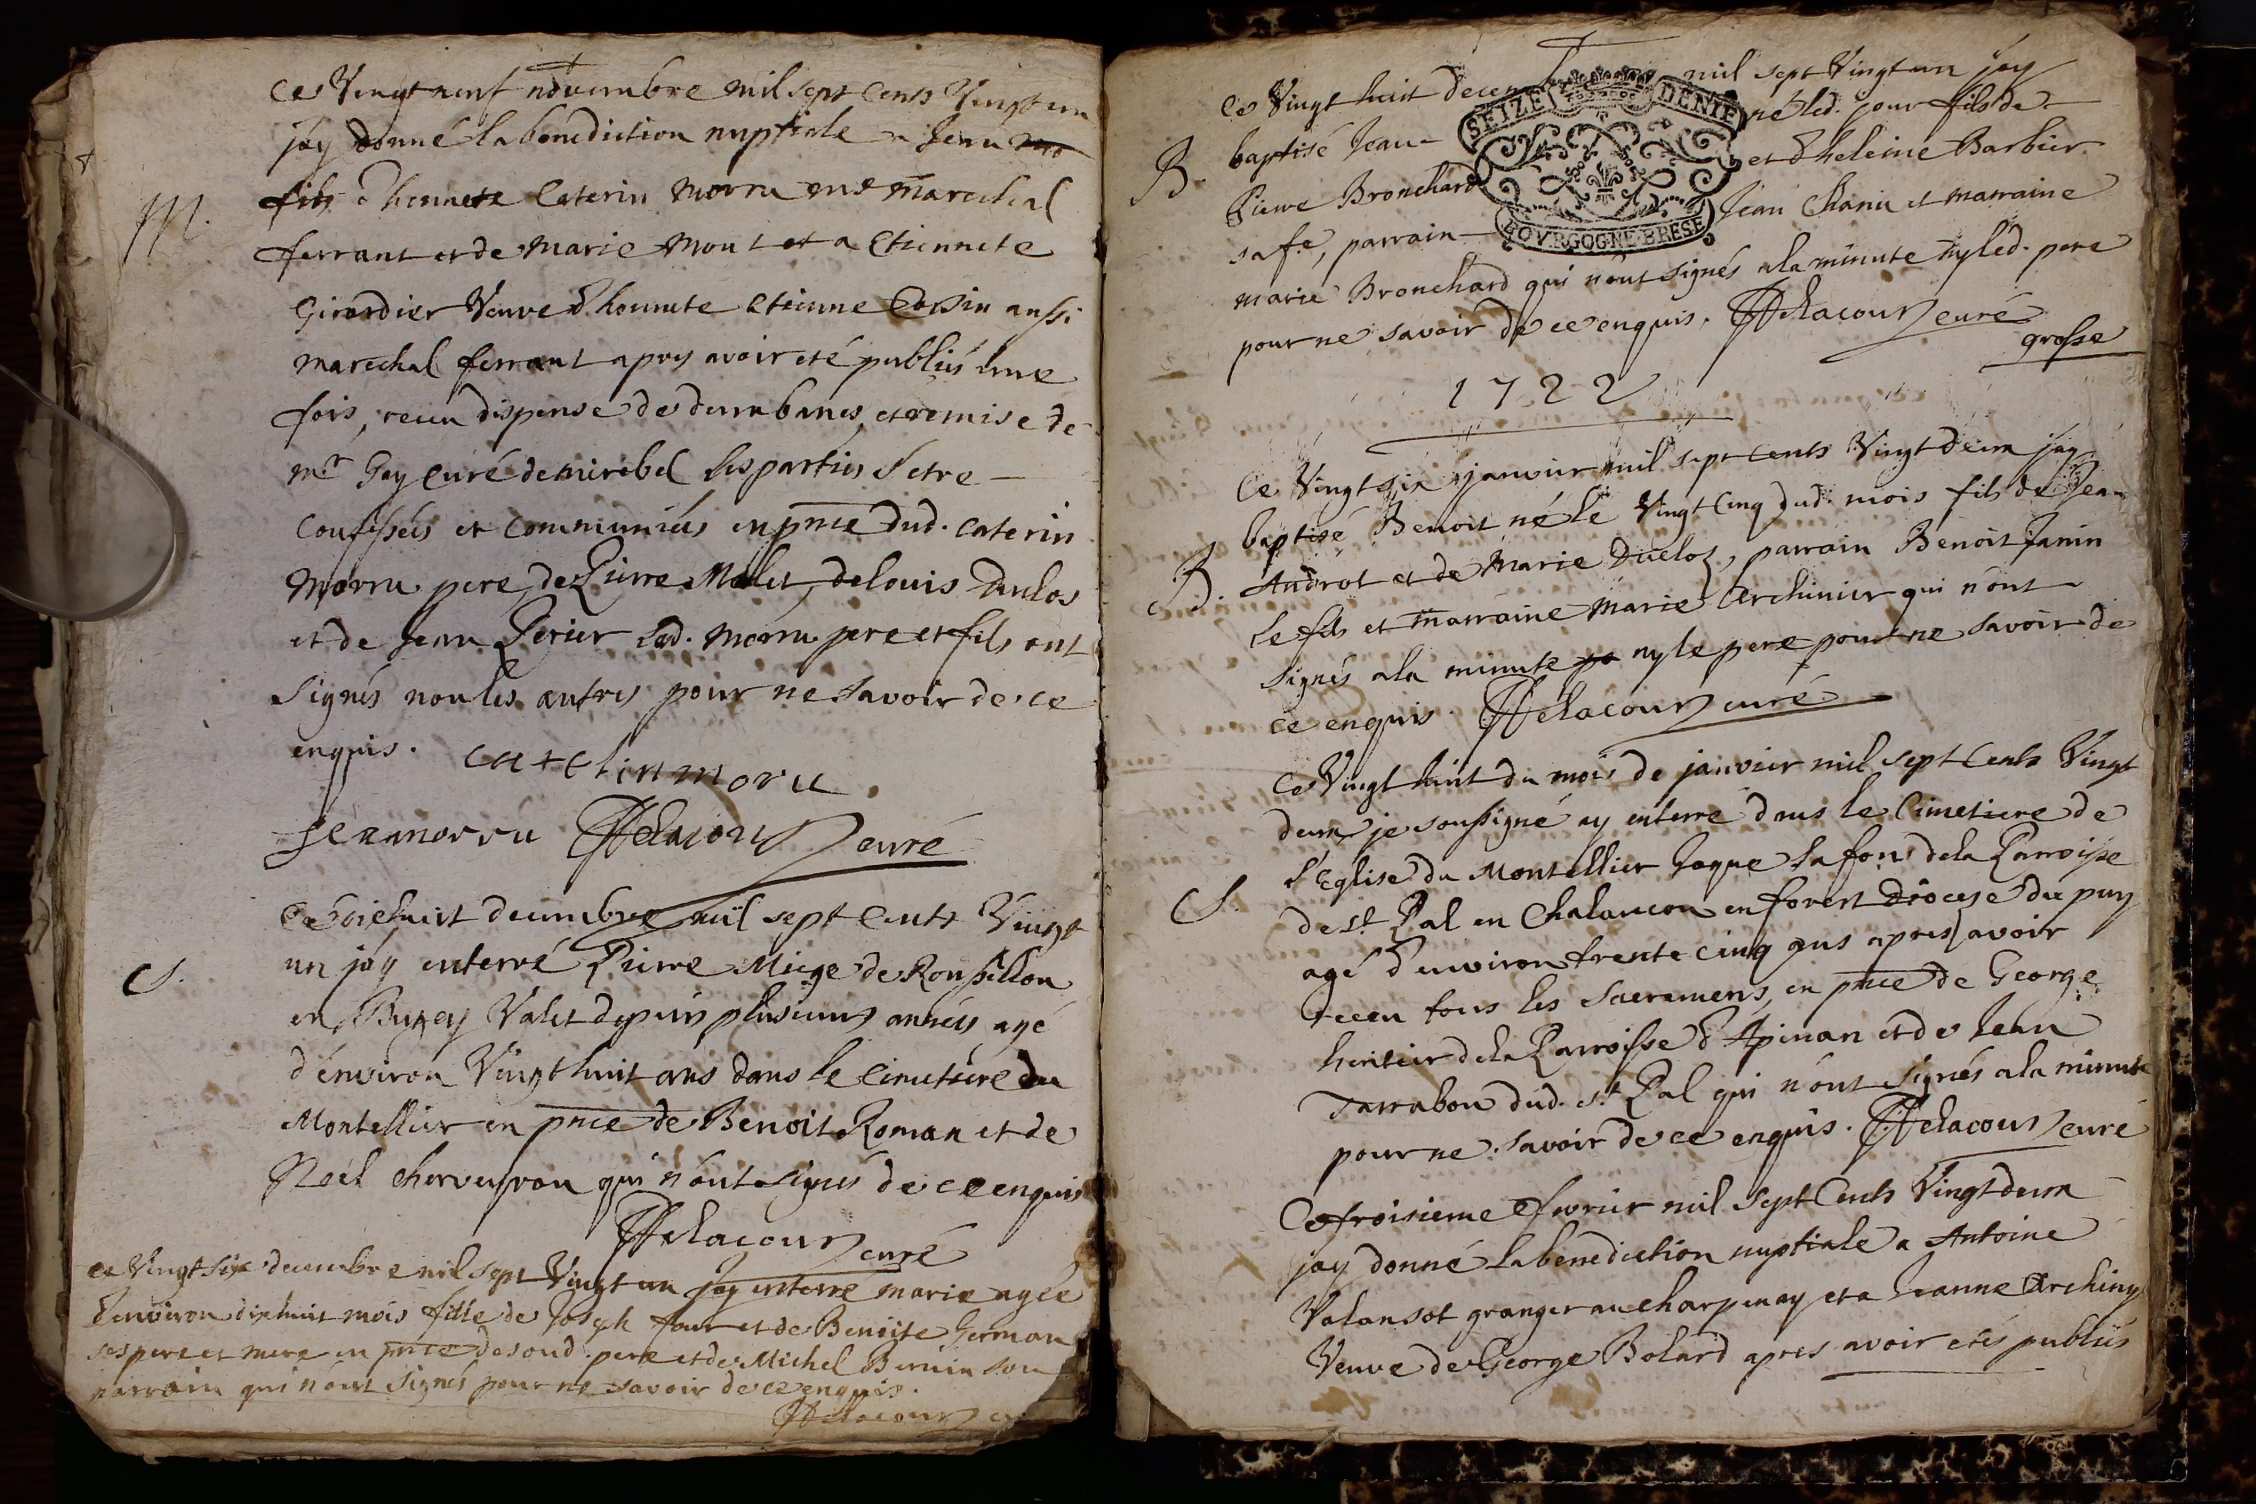 Ce Vingt neuf novembre mil sept Cents Vingt un
j'ay donné la bénédiction nuptiale a Jean
M. fils d'honnete Caterin Morru me marechal
ferrant et de Marie Mont et a Etiennete
Girardier Veuve d'honnete Etienne Cossin aussi
marechal ferrant apres avoir eté publiés une
fois, receu dispense de deux bancs, et remise de
mr Gay curé de miribel les parties s'etre
confessés et communiés en pnce dud. Caterin
Morru pere, de Pierre Molet, de louis Duclos
et de Jean Perier led. Morru pere et fils ont
signés non les autres pour ne savoir de ce
enquis. catelin moru
jean morru Delacour curé
Ce dixhuit decembre mil sept Cents Vingt
un j'ay enterré Pierre Miege de Roussillon
S. en Bugey Valet depuis plusieurs années agé
d'environ Vingt huit ans dans le cimetiere du
Montellier en pnce de Benoit Roman et de
Noël qui n'ont signés de ce enquis
Delacour curé
ce Vingt six decembre mil sept Vingt un j'ay enterré marie agée
d'environ dixhuit mois fille de Joseph four et de Benoite German
ses pere et mere en pnce desond. pere et de Michel Bernin son
parrain qui n'ont signés pour ne savoir de ce enquis.
Delacour
Ce Vingt huit mil sept Vingt un j'ay
B. baptisé Jean né led. jour fils de
Pierre Bronchard et d'heleine Barbier
sa fe, parrain Jean Chanin et marraine
marie Bronchard qui n'ont signés a la minute ny led. pere
pour ne savoir de ce enquis. Delacour curé
grosse
SEIZE DENIE
BOVRGOGNE BRESE
1722
Ce Vingt six janvier mil sept cents Vingt deux j'ay
baptisé Benoit né le Vingt Cinq dud. mois fils de Jean
B. Androt et de Marie Duclos, parrain Benoit Janin
le fils et marraine Marie Archinier qui n'ont
signés a la minute ny le pere pour ne savoir de
ce enquis. Delacour curé
Ce Vingt huit du mois de janvier mil sept Cents Vingt
deux je soussigné ay enterré dans le Cimetiere de
l'Eglise du Montellier Jaque Lafon de la Parroisse
S. de st Pal en Chalancon en forest Diocese du puy
agé d'environ trente cinq ans apres avoir
receu tous les Sacremens, en pnce de George
heritier de la Parroisse d'Apinan et de Jean
Tarrabou dud. st Pal qui n'ont signés a la minute
pour ne savoir de ce enquis. Delacour curé
Ce troisieme fevrier mil sept Cents Vingt deux
j'ay donné la benediction nuptiale a Antoine
Valansot granger au charpenay et a Jeanne Archiny
Veuve de George Bolard apres avoir etés publiés